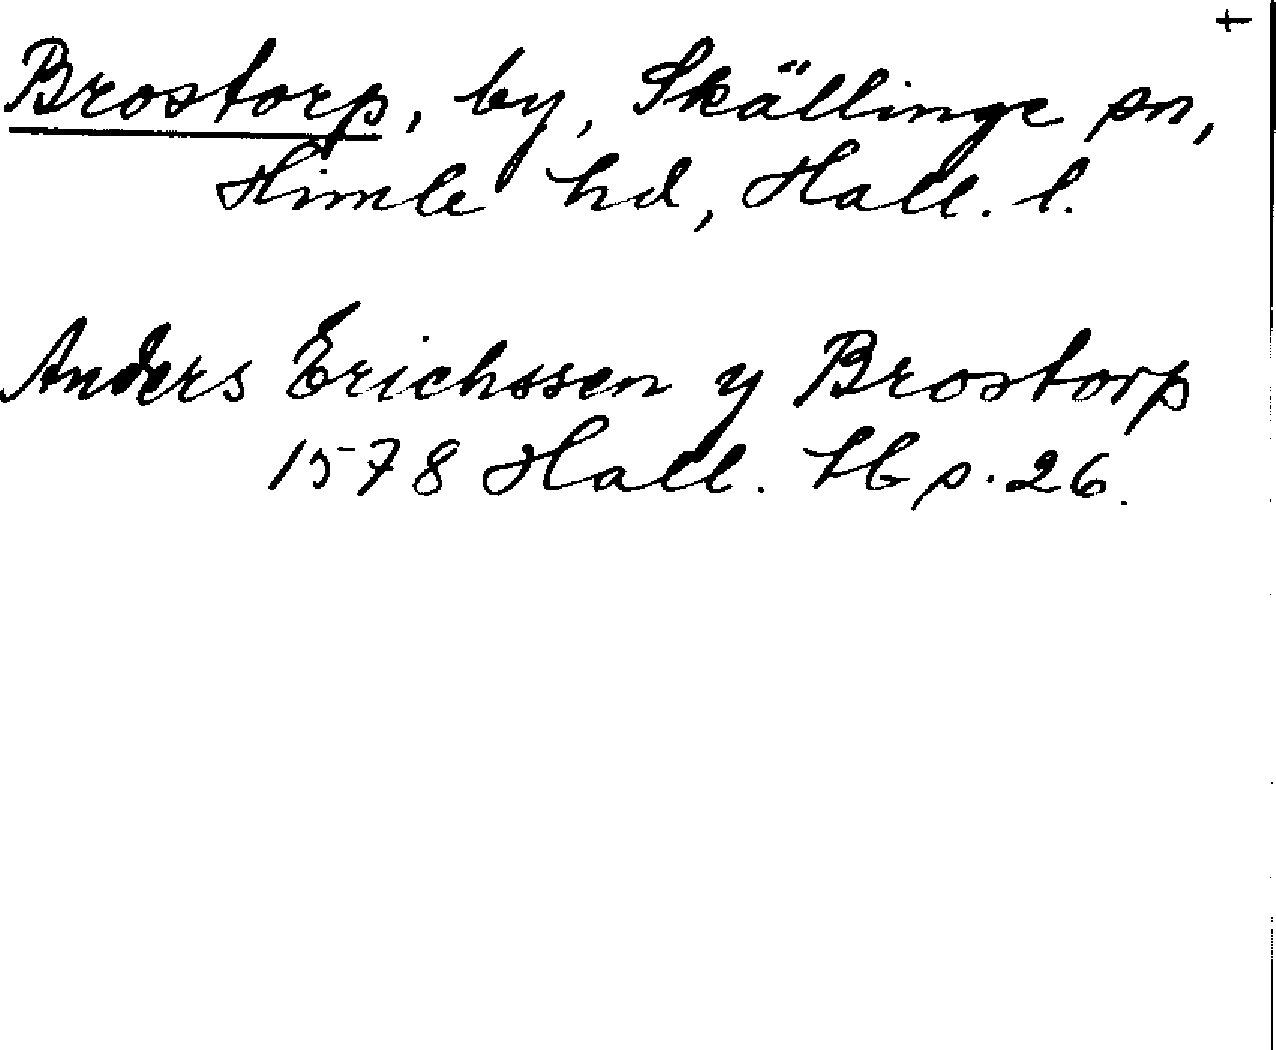 Brostorp, by, Skällinge sn,
Himle hd, Hall. l.
Anders Erichssen y Brostorp
1578 Hall. tb s. 26.